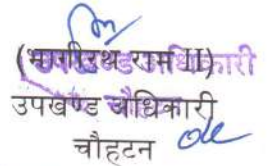 (भागीरथ राम II)
उपखण्ड अधिकारी
उपखण्ड अधिकारी
चौहटन